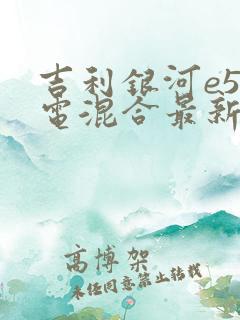 吉利銀河e5
電混合最新
高博架
未经同意禁止转载